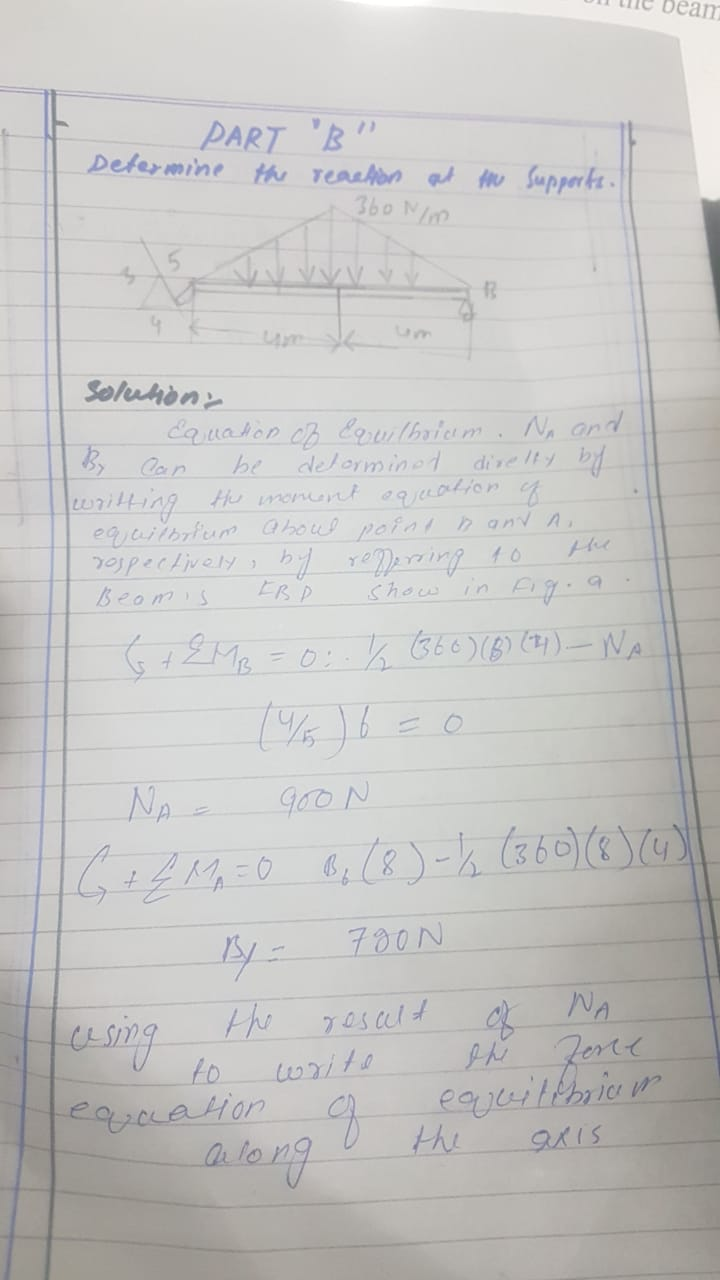 on the beam
PART "B"
Determine the reaction at the Supports.
360 N/m
5
3
B
4
4m
4m
Solution:-
Equation of Equilbrium. NA and
By Can be determinet direlty by
writting the moment equation of
equilbrium about point B and A.
respectively, by refferring to the
Beam,s FBD show in Fig. a.
↺ + ΣMB = 0: 1/2 (360)(8)(4) - NA
(4/5) 8 = 0
NA = 900 N
↺ + ΣMA = 0 By (8) - 1/2 (360)(8)(4)
By = 720N
using the result of NA
to write the force
equation of equilibrium
along the axis